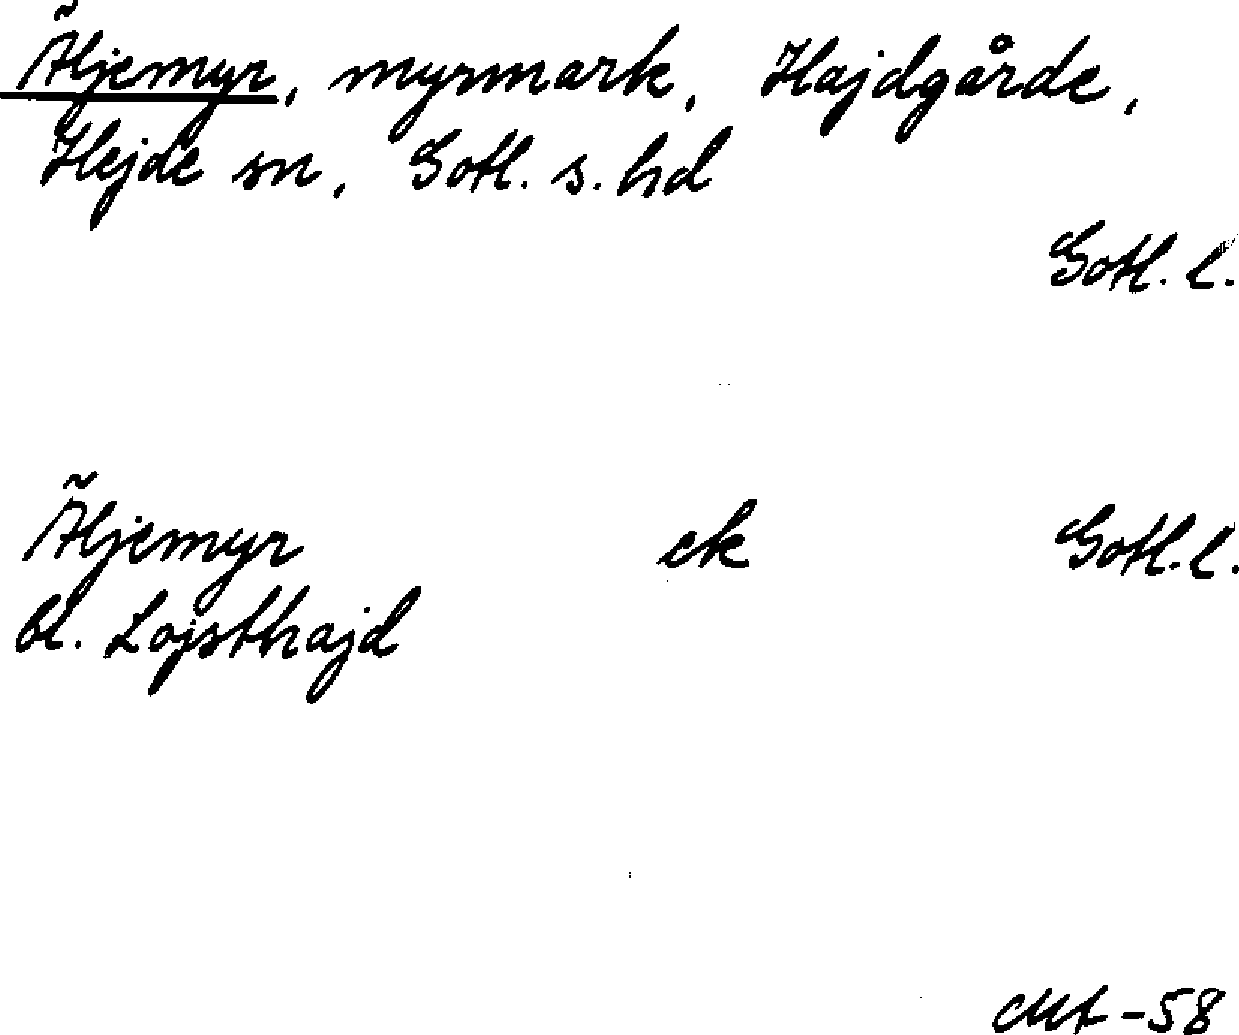 Äljemyr, myrmark, Hajdgårde,
Hejde sn, Gotl. s. hd
Gotl. l.
Äljemyr ek Gotl. l.
bl. Lojsthajd
-58